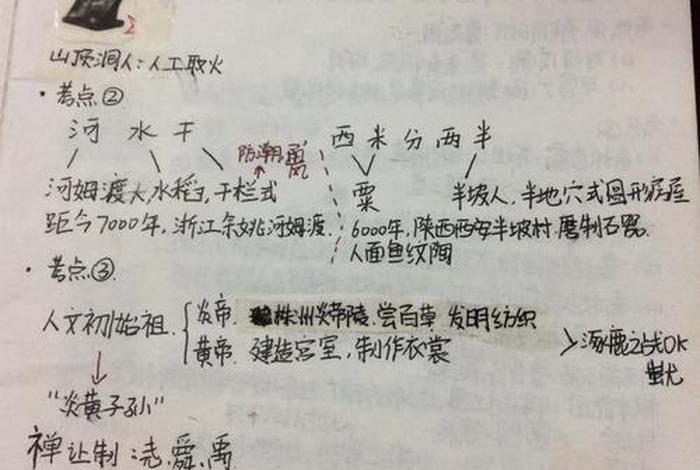 山顶洞人:人工取火
·考点②
河 水 干 防潮通风 西米分两半
河姆渡人,水稻,干栏式 粟 半坡人,半地穴式圆形房屋
距今7000年,浙江余姚河姆渡. 6000年,陕西西安半坡村.磨制石器.
人面鱼纹陶
·考点③.
人文初始祖. 炎帝. 株州炎帝陵.尝百草 发明纺织
黄帝. 建造宫室,制作衣裳 >涿鹿之战OK
蚩尤
"炎黄子孙"
禅让制:尧.舜.禹